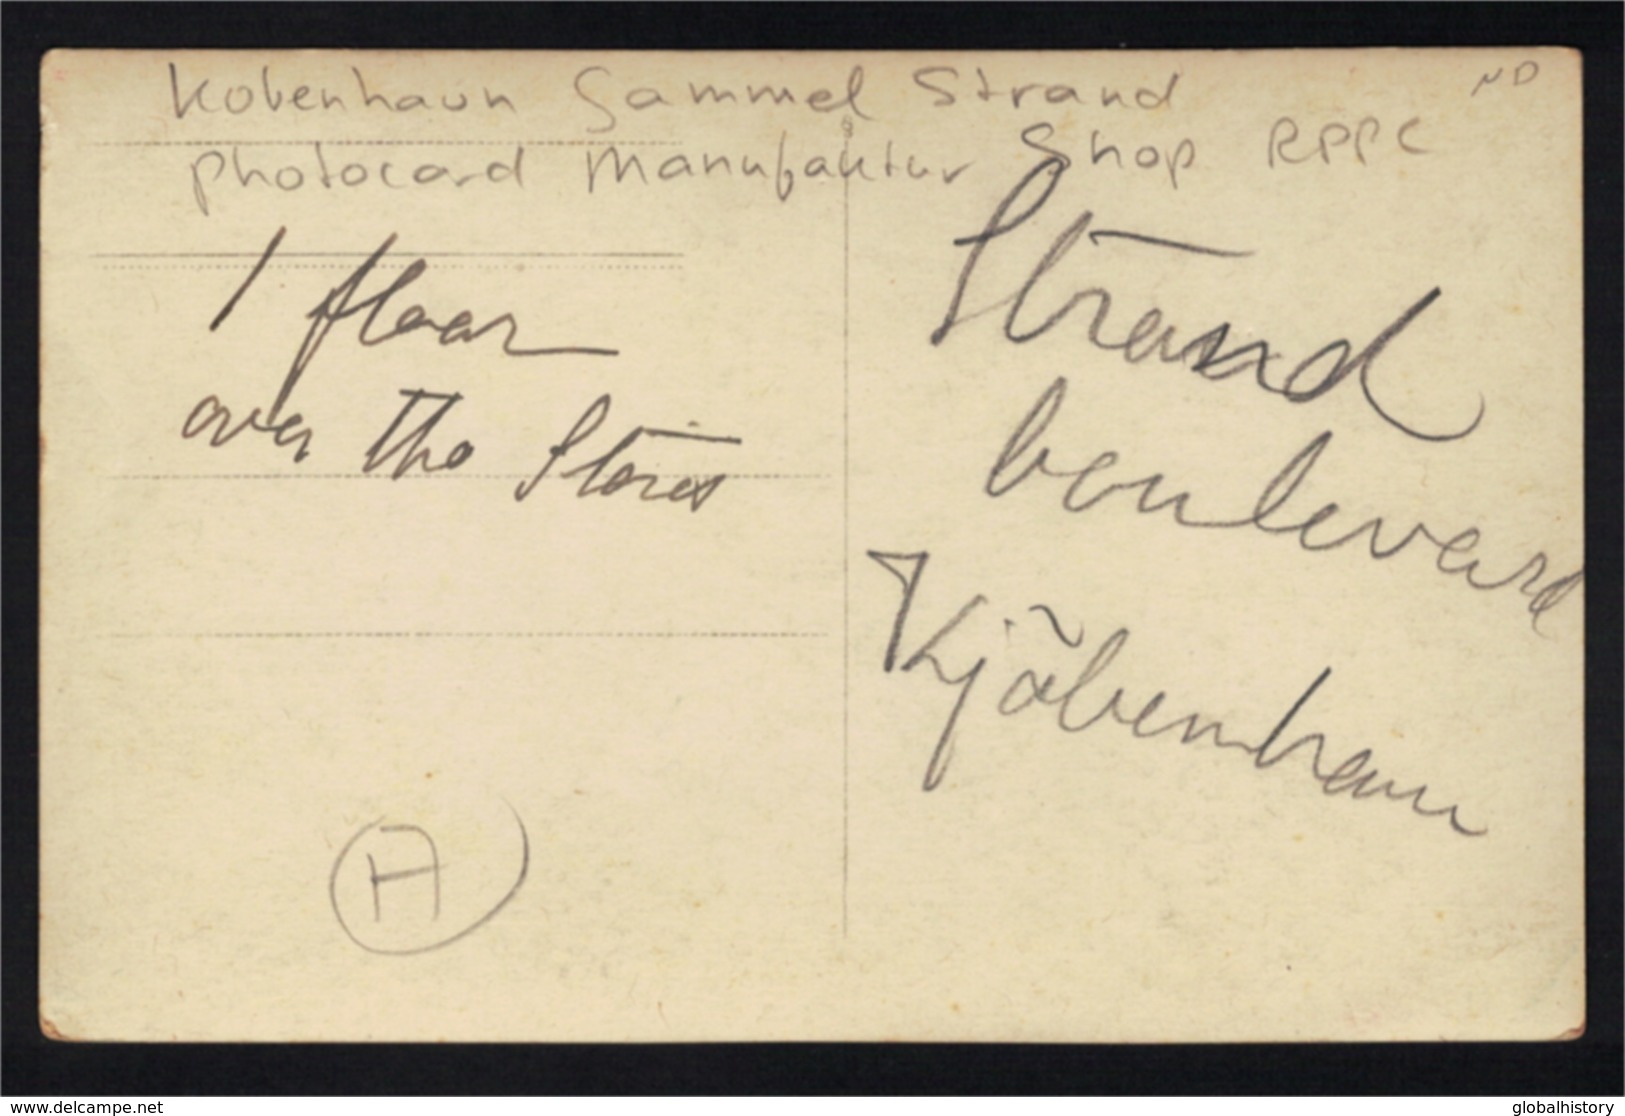 Kobenhavn Gammel Strand ND
photocard Manufaktur Shop RPPC
1 floor
over the Stores
Strand
boulevard
Kjõbenhavn
H
delcampe.net
globalhistory